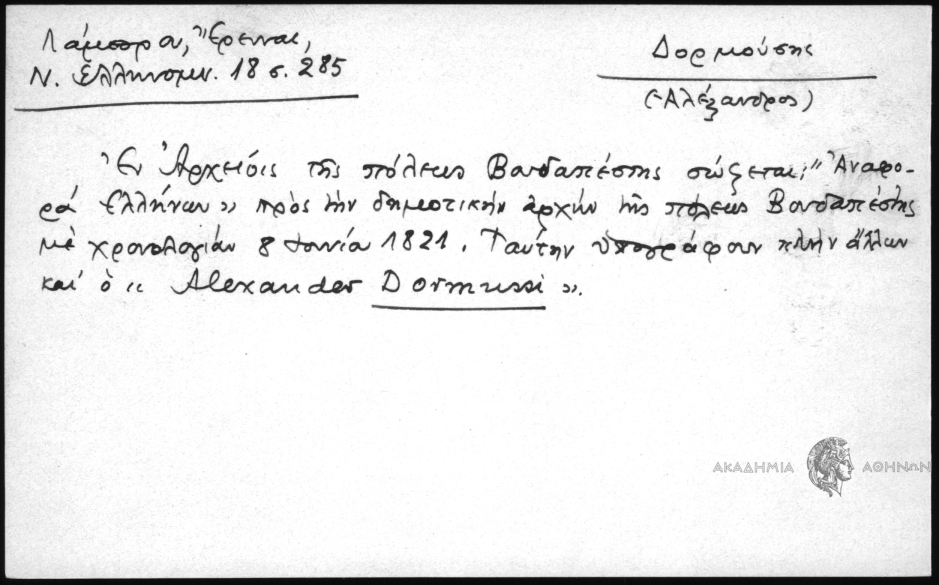 Λάμπρου, Ἔρευναι,
Ν. Ἑλληνομν. 18 σ. 285
Δορμούσης
(Ἀλέξανδρος)
Ἐν Ἀρχείοις τῆς πόλεως Βουδαπέστης σώζεται: "Ἀναφο-
ρά Ἑλλήνων» πρὸς τὴν δημοτικὴν ἀρχὴν τῆς πόλεως Βουδαπέστης
μὲ χρονολογίαν 8 Ἰουνία 1821. Ταύτην ὑπογράφουν πλὴν ἄλλων
καί ὁ «Alexander Dormussi».
ΑΚΑΔΗΜΙΑ ΑΘΗΝΩΝ